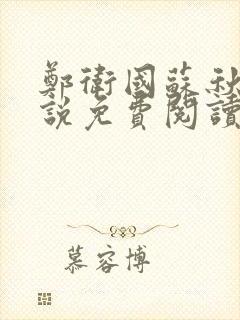 鄭衛國蘇秋
說免費閱讀
慕容博